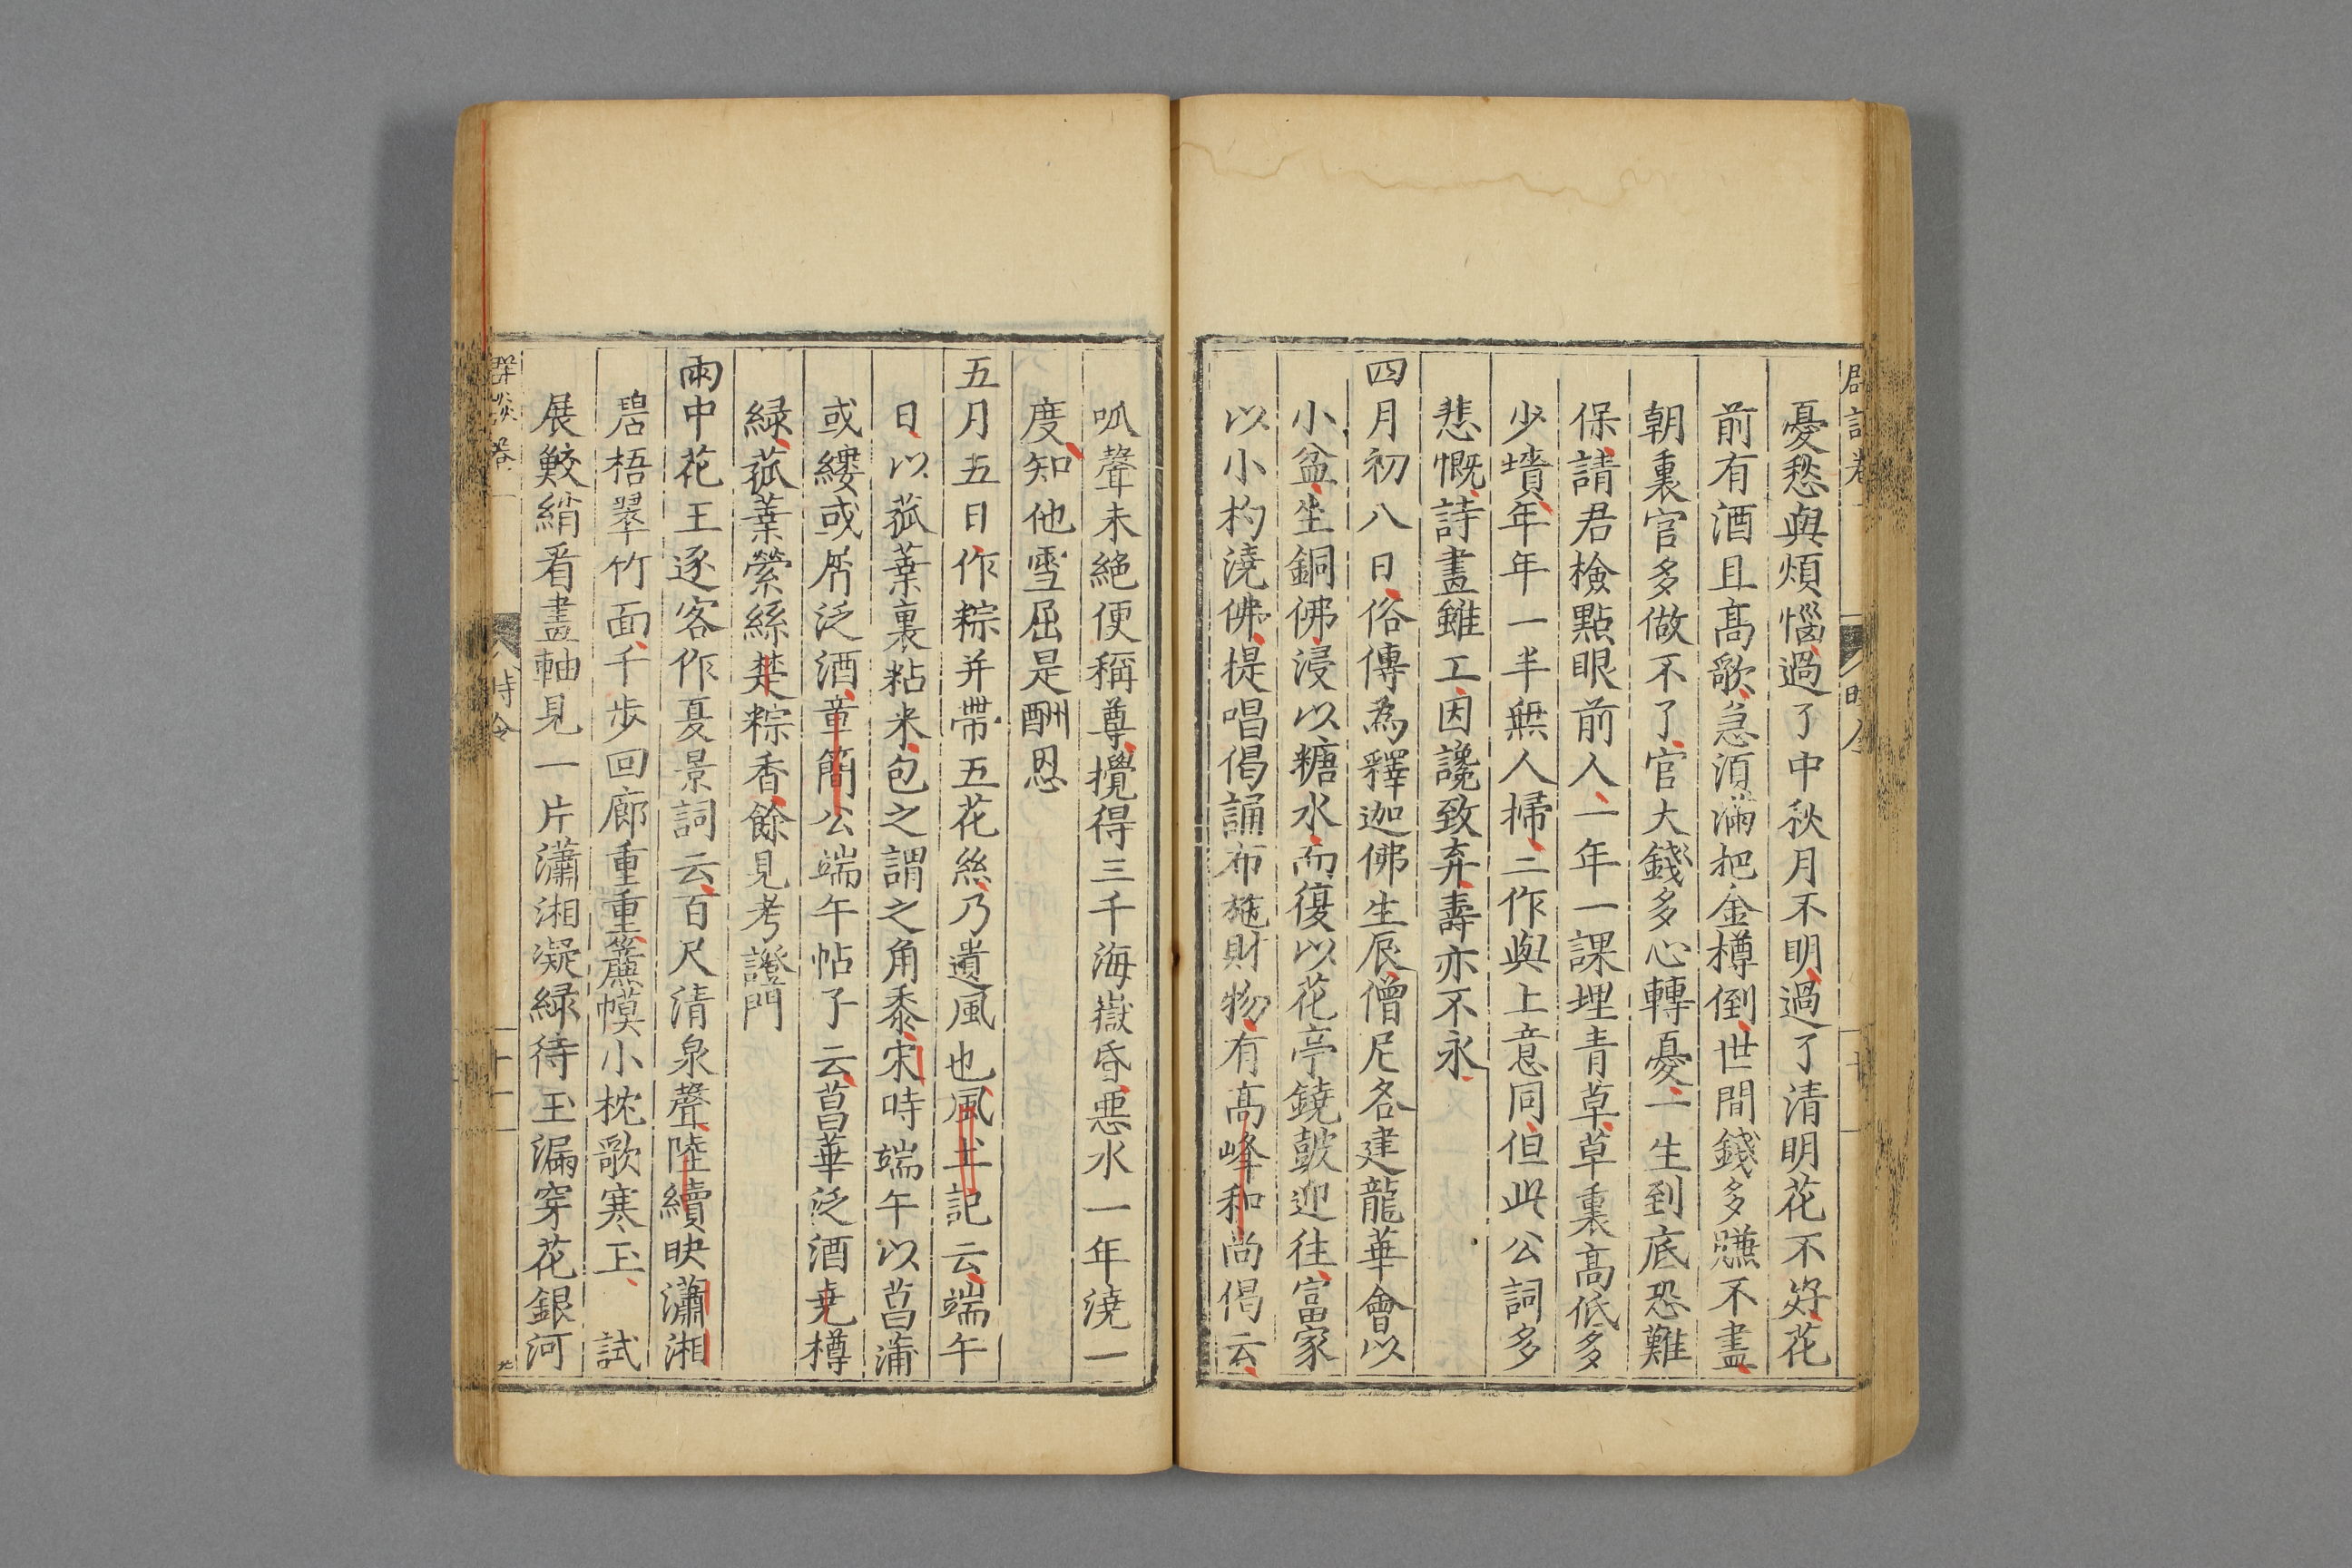 憂愁與煩惱過了中秋月不明過了清明花不好花
前有酒且高歌急湏滿把金樽倒世間錢多賺不盡
朝裏官多做不了官大錢多心轉憂一生到底恐難
保請君檢點眼前人一年一課埋青草草裏高低多
少墳年年一半無人掃二作與上意同但此公詞多
悲慨詩畫雖工因讒致弃壽亦不永
四月初八日俗傳為釋迦佛生辰僧尼各建龍華會以
小盆坐銅佛浸以糖水而復以花亭鐃皷迎往富家
以小杓澆佛提唱偈誦布施財物有高峰和尚偈云
呱聲未絶便稱尊攪得三千海嶽昏惡水一年澆一
度知他雪屈是酬恩
五月五日作粽并帶五花絲乃遺風也風土記云端午
日以菰葉裏粘米包之謂之角黍宋時端午以菖蒲
或縷或屑泛酒章簡公端午帖子云菖華泛酒堯樽
綠菰葉縈絲楚粽香餘見考證門
雨中花王逐客作夏景詞云百尺清泉聲陸續映瀟湘
碧梧翠竹面千歩回廊重重簾幙小枕歌寒玉 試
展鮫綃看畫軸見一片瀟湘凝綠待玉漏穿花銀河
群談卷一
時令
十一